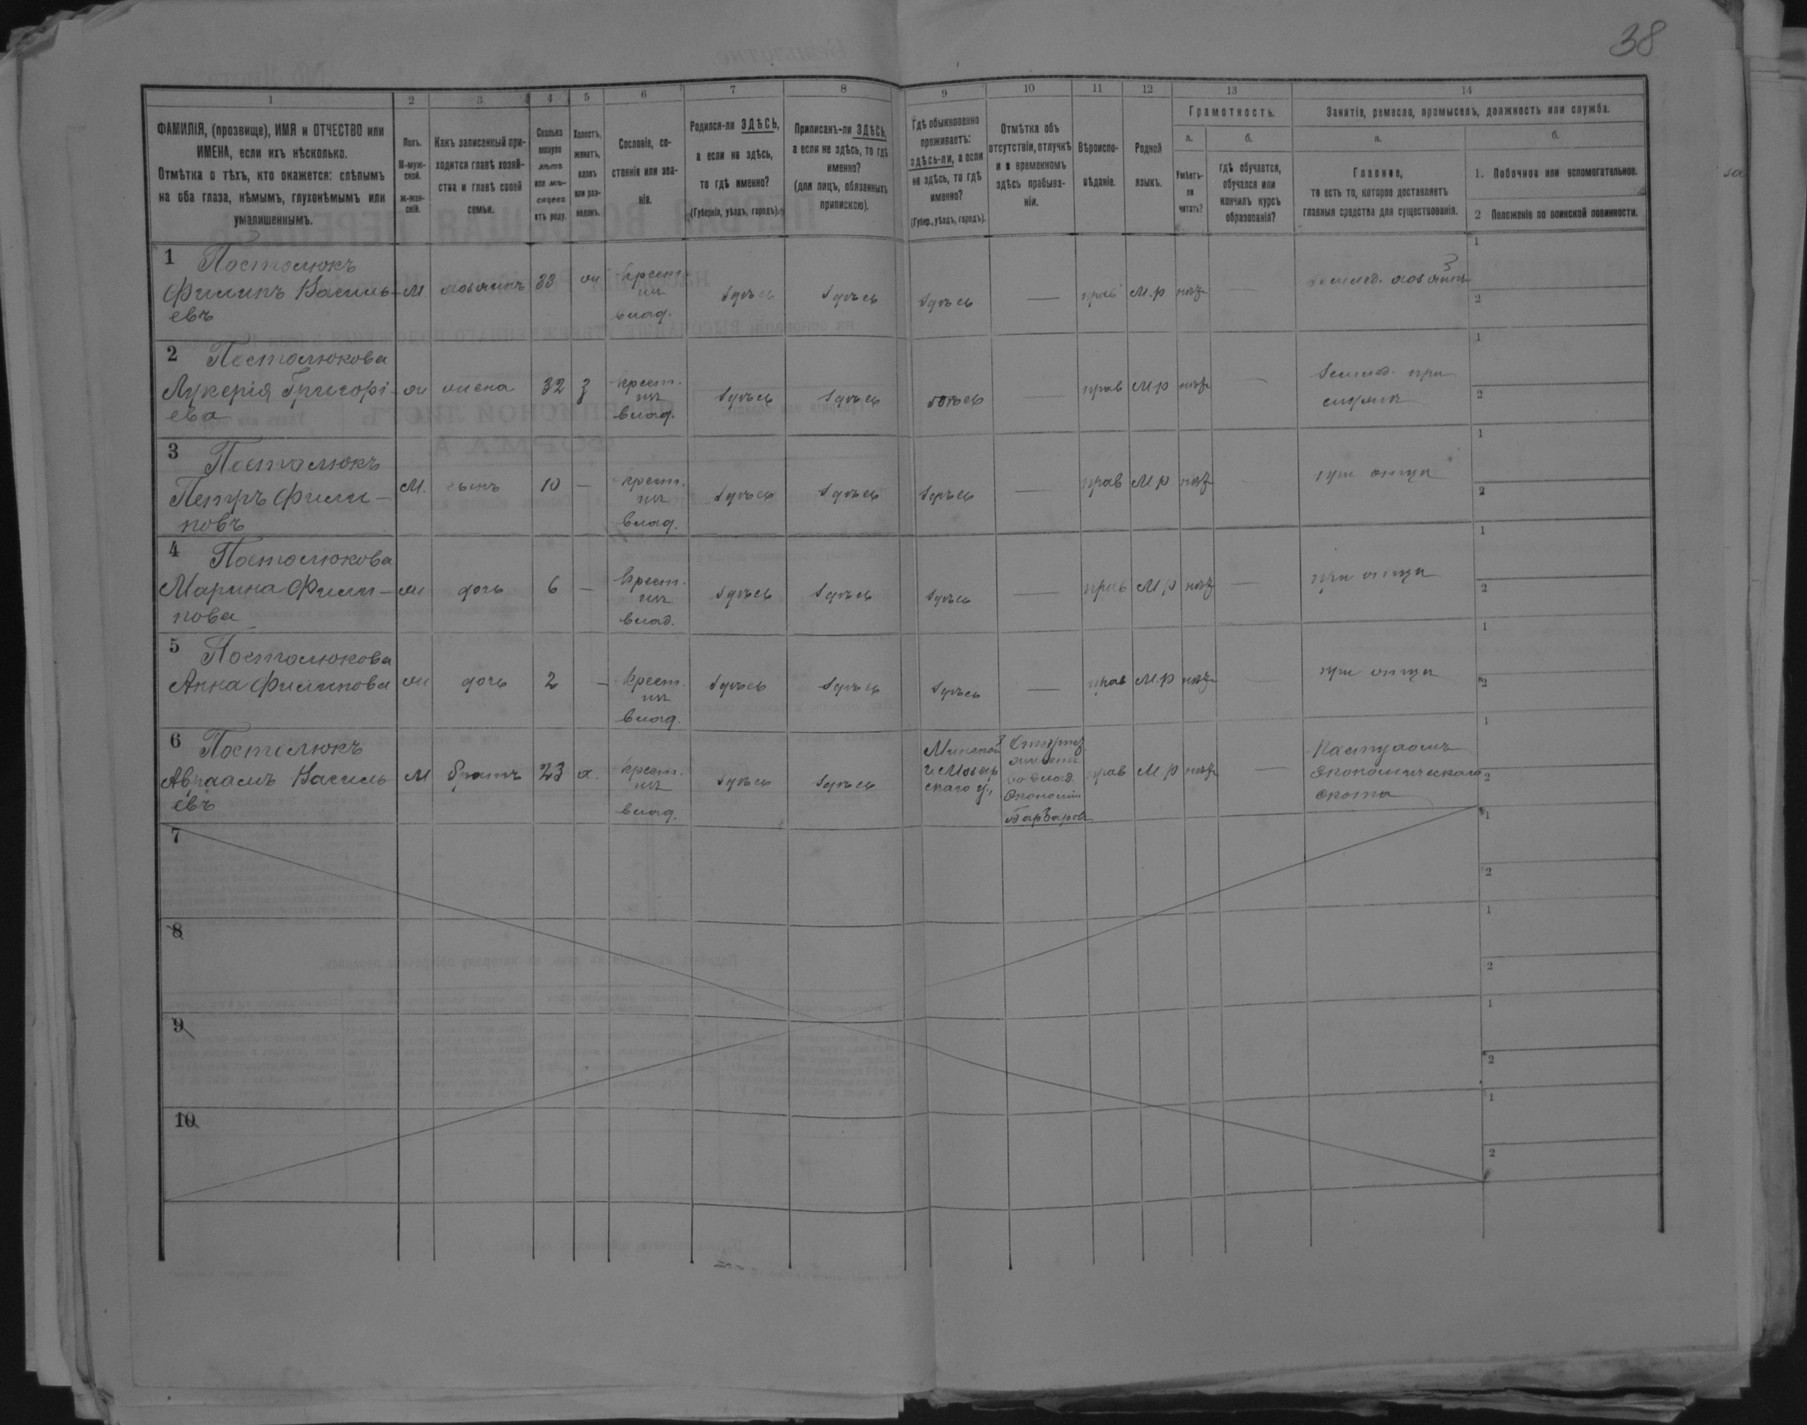 38
1
2
3
4
5
6
7
8
9
10
11
12
13
14
ФАМИЛІЯ, (прозвище), ИМЯ и ОТЧЕСТВО или
ИМЕНА, если ихъ нѣсколько.
Отмѣтка о тѣхъ, кто окажется: слѣпымъ
на оба глаза, нѣмымъ, глухонѣмымъ или
умалишеннымъ.
Полъ.
М-муж-
ской.
Ж-жен-
скій.
Какъ записанный при-
ходится главѣ хозяй-
ства и главѣ своей
семьи.
Сколько
минуло
лѣтъ
или мѣ-
сяцевъ
отъ роду.
Холостъ,
женатъ,
вдовъ
или раз-
веденъ.
Сословіе, со-
стояніе или зва-
ніе.
Родился-ли ЗДѢСЬ,
а если не здѣсь,
то гдѣ именно?
(Губернія, уѣздъ, городъ).
Приписанъ-ли ЗДѢСЬ,
а если не здѣсь, то гдѣ
именно?
(для лицъ, обязанныхъ
припискою).
Гдѣ обыкновенно
проживаетъ:
здѣсь-ли, а если
не здѣсь, то гдѣ
именно?
(Губер., уѣздъ, городъ).
Отмѣтка объ
отсутствіи, отлучкѣ
и о временномъ
здѣсь пребыва-
ніи.
Вѣроиспо-
вѣданіе.
Родной
языкъ.
Грамотность.
а.
Умѣетъ-
ли
читать?
б.
гдѣ обучается,
обучался или
кончилъ курсъ
образованія?
Занятіе, ремесло, промыселъ, должность или служба.
а.
Главное,
то есть то, которое доставляетъ
главныя средства для существованія.
б.
1. Побочное или вспомогательное.
2 Положеніе по воинской повинности.
1 Постолюкъ
Филипъ Василь-
евъ
М. хозяинъ 33 ж
крест. изъ влад.
здѣсь здѣсь здѣсь — прав М.р нѣтъ —
земled. хозяинъ
2 Постолюкова
Лукерія Григорі-
ева
ж жена 32 з
крест. изъ влад.
здѣсь здѣсь здѣсь — прав М.р нѣтъ —
землед. при
3 Постолюкъ
Петръ Фили-
повъ
М. сынъ 10 —
крест. изъ влад.
здѣсь здѣсь здѣсь — прав М.р нѣтъ
при отцѣ
4 Постолюкова
Марина Фили-
пова
ж дочь 6 —
крест. изъ влад.
здѣсь здѣсь здѣсь — прав М.р нѣтъ —
при отцѣ
5 Постолюкова
Анна Филипова
ж дочь 2 —
крест. изъ влад.
здѣсь здѣсь здѣсь — прав М.р нѣтъ —
при отцѣ
6 Постолюкъ
Авраамъ Василь
евъ
М братъ 23 х.
крест. изъ влад.
здѣсь здѣсь
скаго у.,
прав М.р нѣтъ —
Пастухомъ
экономическаго
скота
7
8
9
10